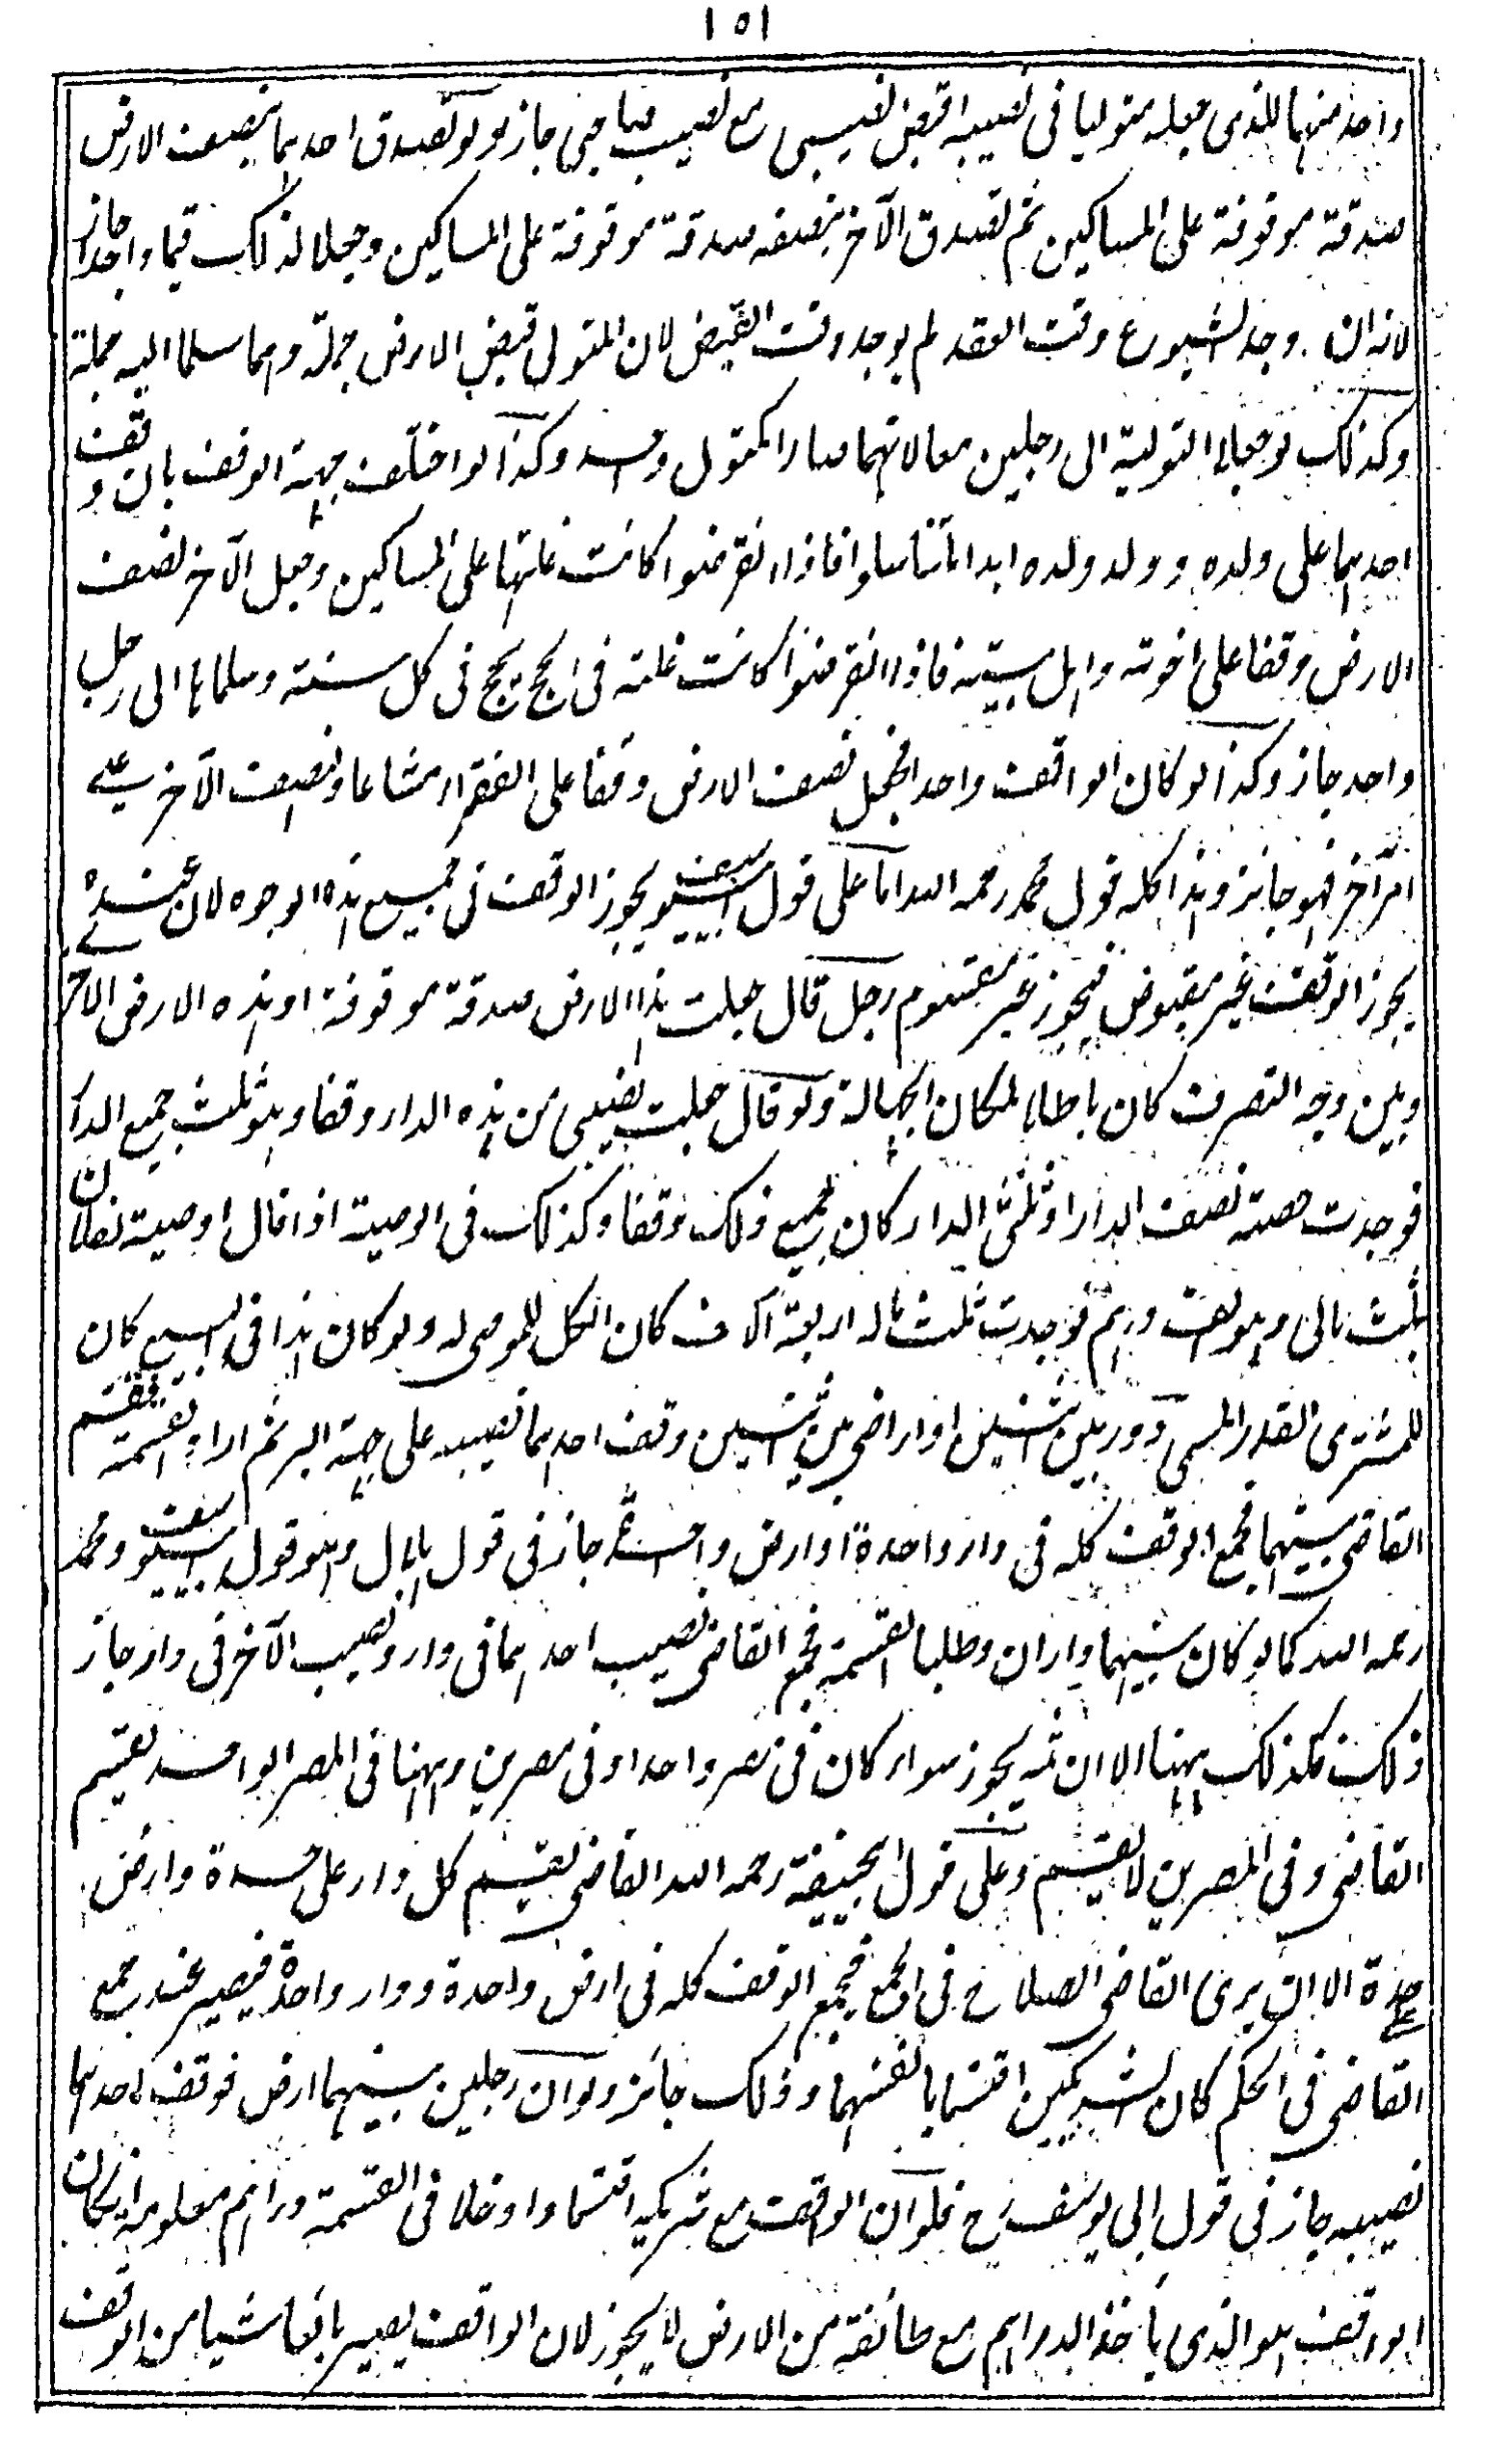 ١٥١
واحد منهما للذى جعله متوليا فى نصيبه اقبض نصيبى مع نصيب صاحبى جاز ولو تصدق احدهما بنصف الارض
صدقة موقوفة على المساكين ثم تصدق الآخر بنصفه صدقة موقوفة على المساكين وجعلا لذلك قيما واحدا جاز
لانه ان وجد الشيوع وقت العقد لم يوجد وقت القبض لان المتولى قبض الارض جملة وهما سلما اليه جملة
وكذلك لو جعلا التولية الى رجلين معا لانهما صارا كمتول واحد وكذا لو اختلف جهة الوقف بان وقف
احدهما على ولده وولد ولده ابدا ما تناسلوا فاذا انقرضوا كانت غلتها على المساكين وجعل الآخر نصف
الارض وقفا على اخوته واهل بيته فاذا انقرضوا كانت غلته فى الحج يحج فى كل سنة وسلماها الى رجل
واحد جاز وكذا لو كان الواقف واحدا فجعل نصف الارض وقفا على الفقراء مشاعا ونصف الآخر على
امر آخر فهو جائز وهذا كله قول محمد رحمه الله اما على قول ابييوسف يجوز الوقف فى جميع هذه الوجوه لان عنده
يجوز الوقف غير مقبوض فيجوز غير مقسوم رجل قال جعلت هذا الارض صدقة موقوفة او هذه الارض الاخر
وبين وجه التصرف كان باطلا لمكان الجهالة ولو قال جعلت نصيبى من هذه الدار وقفا وهو ثلث جميع الدار
فوجدت حصته نصف الدار او ثلثى الدار كان جميع ذلك وقفا وكذلك فى الوصية اذا قال اوصيت لفلان
بثلث مالى وهو الف درهم فوجدت ثلث ماله اربعة آلاف كان الكل للموصى له ولو كان هذا فى البيع كان
للمشترى القدر المسمى دور بين اثنين او اراضى بين اثنين وقف احدهما نصيبه على جهة البر ثم ارادا القسمة فقسم
القاضى بينهما فجمع الوقف كله فى دار واحدة او ارض واحدة جاز فى قول هلال وهو قول ابييوسف ومحمد
رحمه الله كما لو كان بينهما داران وطلبا القسمة فجمع القاضى نصيب احدهما فى دار ونصيب الآخر فى دار جاز
ذلك فكذلك ههنا الا ان ثمه يجوز سواء كان فى مصر واحد او فى مصرين وههنا فى المصر الواحد يقسم
القاضى وفى المصرين لا يقسم وعلى قول ابيحنيفة رحمه الله القاضى يقسم كل دار على حدة وارض
على حدة الا ان يرى القاضى الصلاح فى الجمع فيجمع الوقف كله فى ارض واحدة ودار واحدة فيصير عند جمع
القاضى فى الحكم كان الشريكين اقتسما بانفسهما وذلك جائز ولو ان رجلين بينهما ارض فوقف احدهما
نصيبه جاز فى قول ابى يوسف رح فلو ان الواقف مع شريكه اقتسما وادخلا فى القسمة دراهم معلومة ان كان
الواقف هو الذى يأخذ الدراهم مع طائفة من الارض لا يجوز لان الواقف يصير بائعا شيئا من الوقف